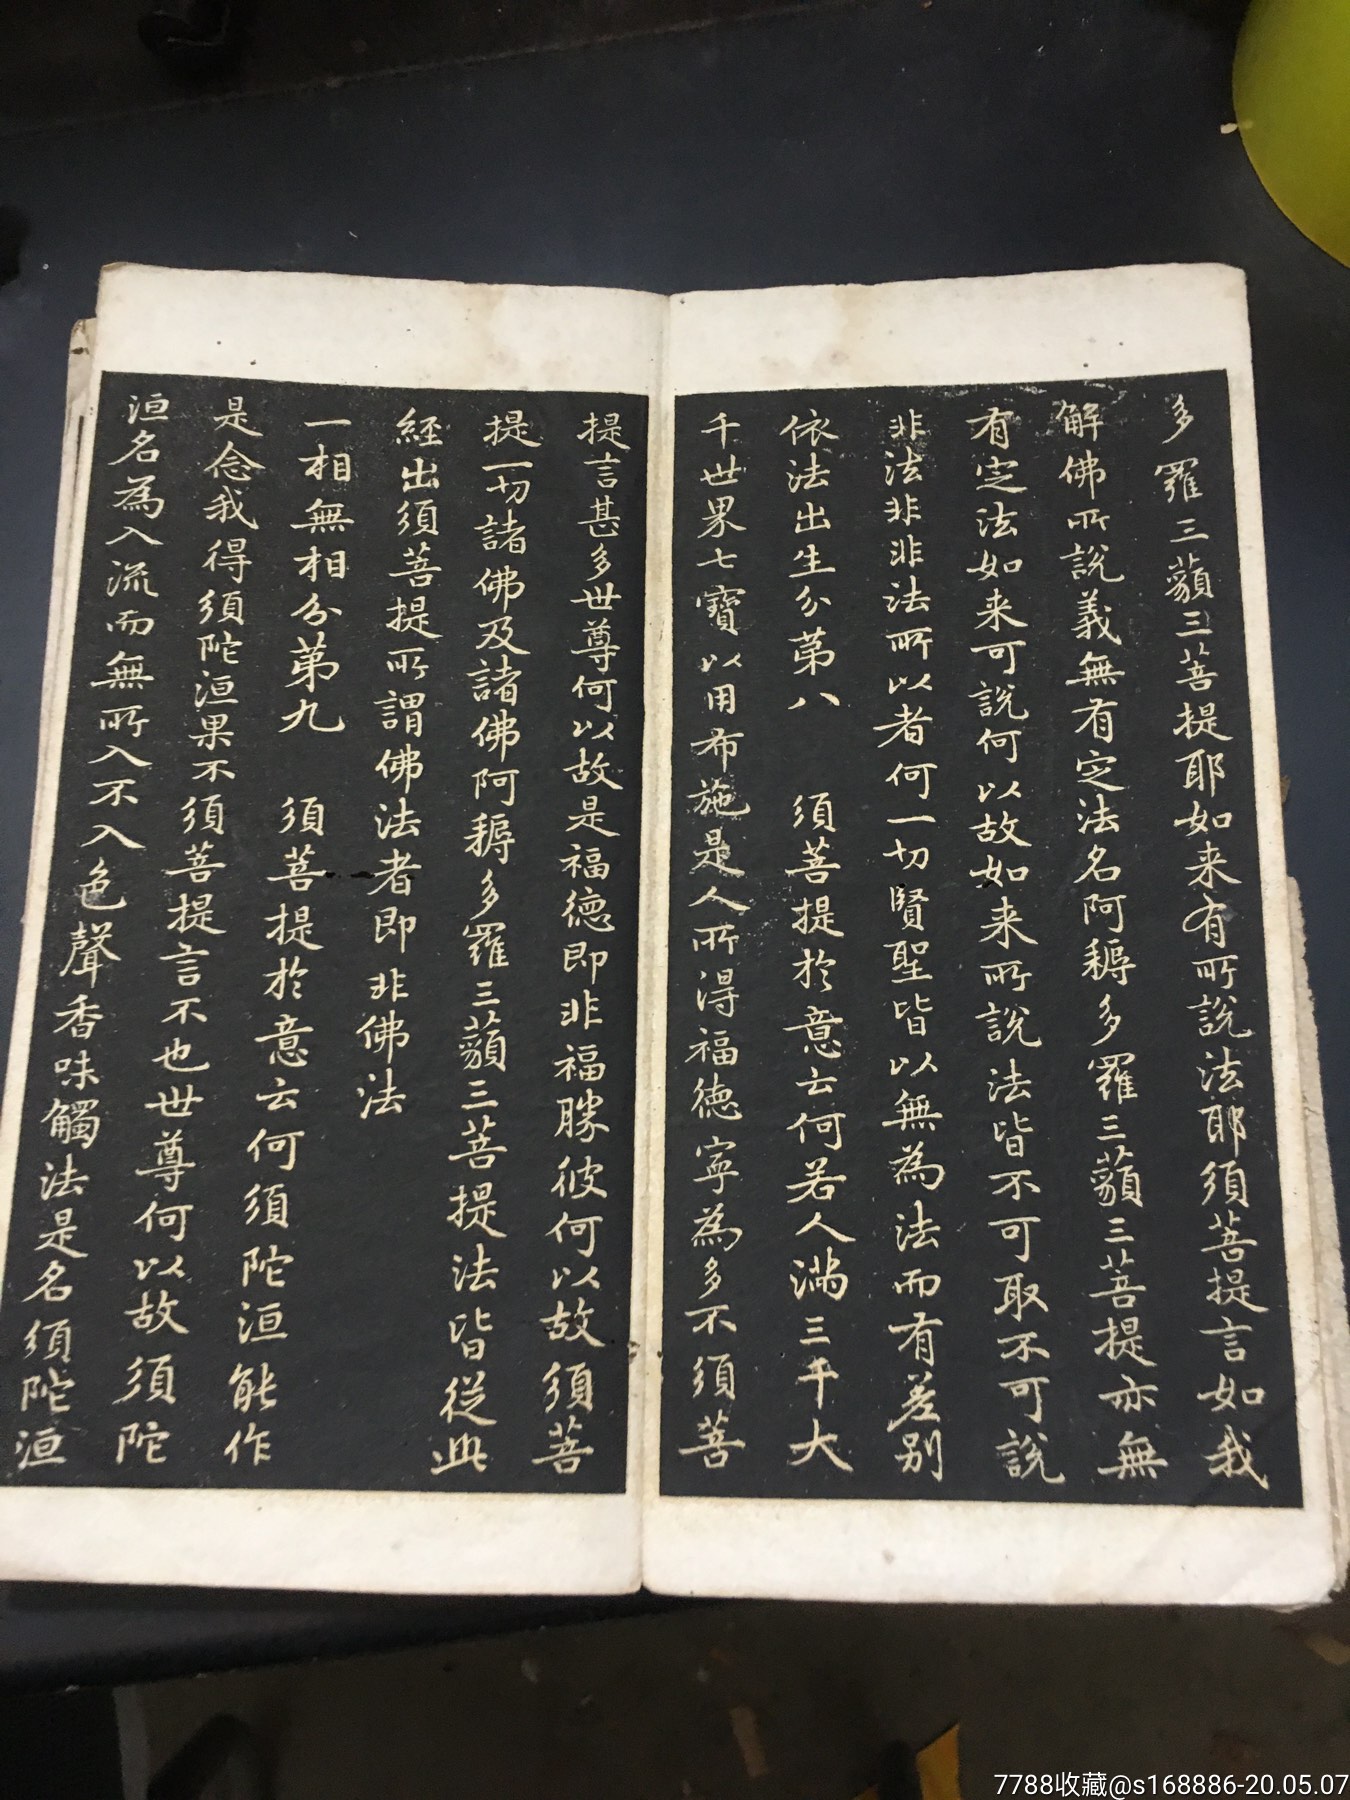 多羅三藐三菩提耶如来有所說法耶須菩提言如我
解佛所說義無有定法名阿耨多羅三藐三菩提亦無
有定法如来可說何以故如来所說法皆不可取不可說
非法非非法所以者何一切賢聖皆以無為法而有差別
依法出生分第八　須菩提於意云何若人滿三千大
千世界七寶以用布施是人所得福德寧為多不須菩
提言甚多世尊何以故是福德即非福勝彼何以故須菩
提一切諸佛及諸佛阿耨多羅三藐三菩提法皆從此
經出須菩提所謂佛法者即非佛法
一相無相分第九　須菩提於意云何須陀洹能作
是念我得須陀洹果不須菩提言不也世尊何以故須陀
洹名為入流而無所入不入色聲香味觸法是名須陀洹
7788收藏@s168886-20.05.07